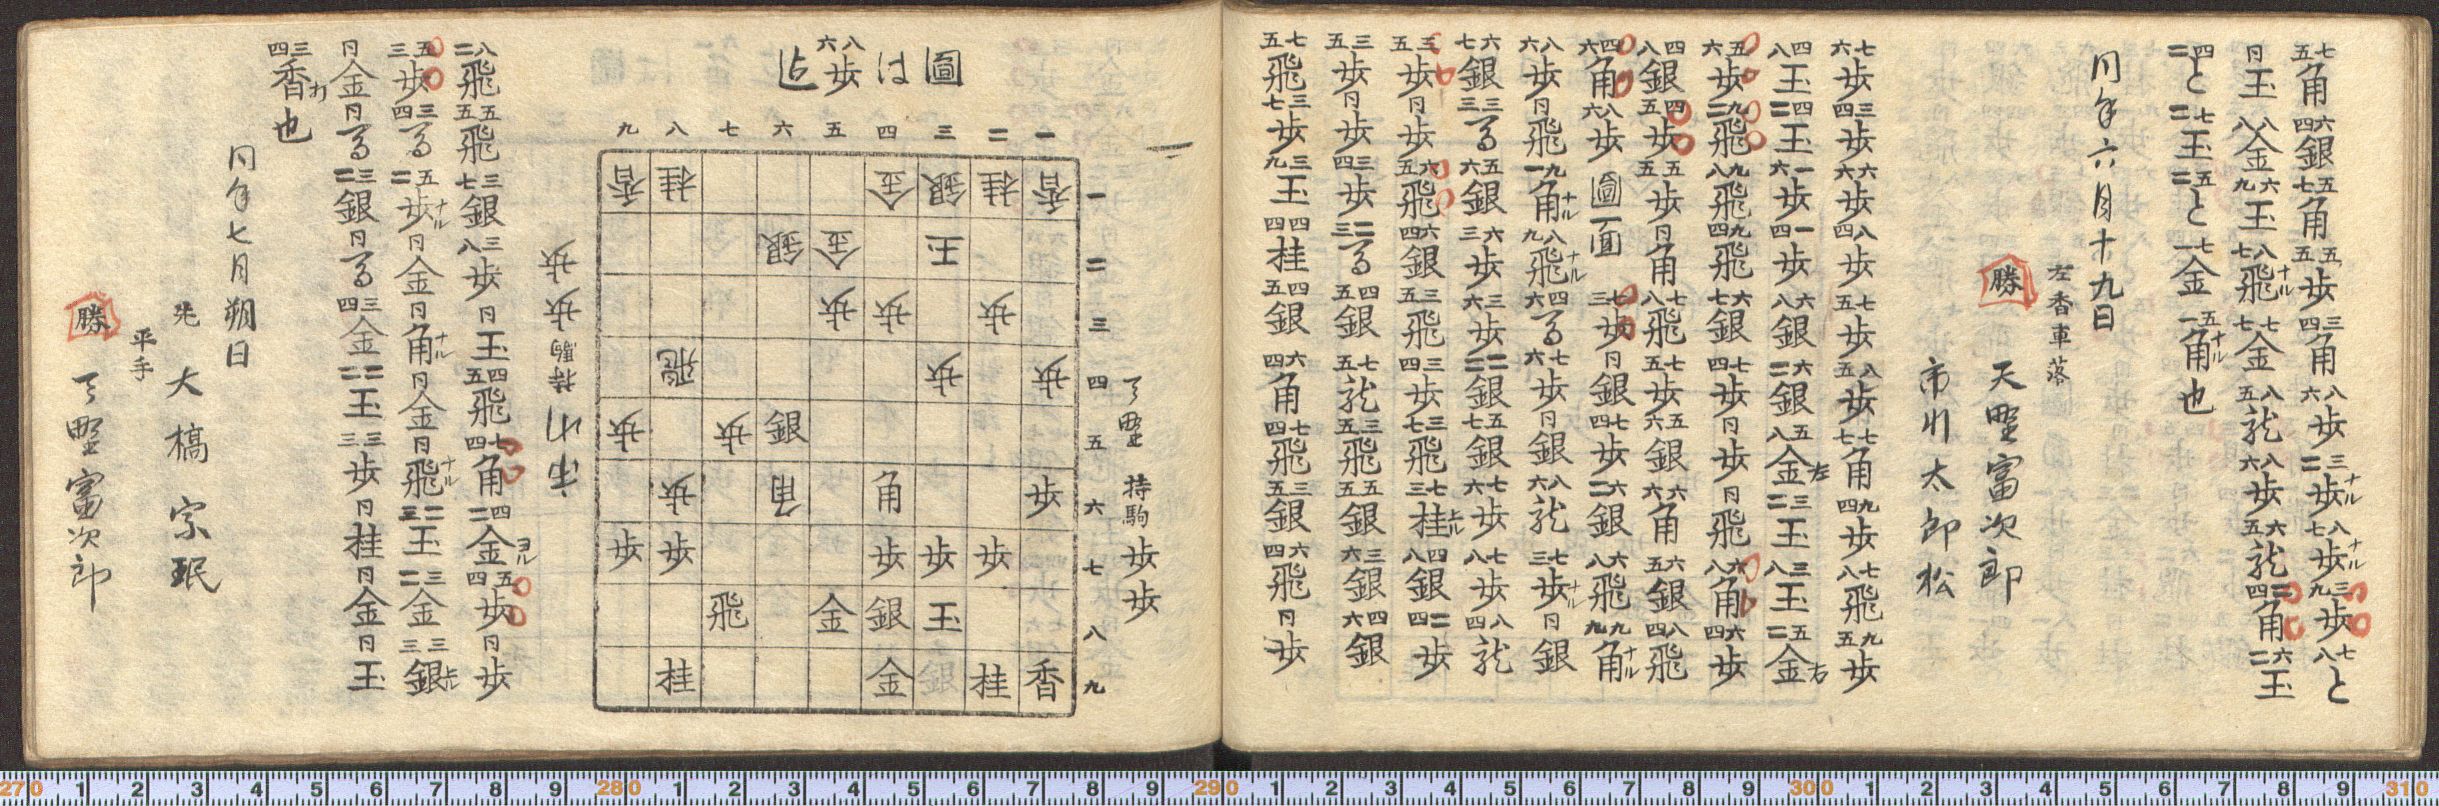 七五角六四銀五七角五五歩三四角八六歩三二歩ナル八七歩ナル三九歩七八と
同玉八八金六九玉八七飛ナル七七金八五龍八六歩六五龍二四角六二玉
四二と七二玉五二と七一金五一角ナル也
同年六月十九日
左香車落
勝 天野富次郎
市川太郎松
七六歩三四歩六六歩八四歩七五歩八五歩七七角九四歩七八飛九五歩
四八玉四二玉一六歩一四歩六八銀六二銀五八金左三二玉三八玉五二金右
五六歩九二飛九八飛九四飛六七銀七四歩同歩同飛六八角六四歩
四八銀四五歩五五歩同角七八飛七五歩五六銀六六角六五銀八四飛
四六角八六歩圖面七三歩同銀七四歩六二銀六八飛九九角ナル
八六歩同飛九一角ナル八九飛ナル四六馬七六歩同銀八六龍七三歩ナル同銀
六七銀三三馬五六銀六三歩三六歩二二銀五七銀七六歩七八歩八四龍
三五歩同歩六五飛六四銀三五飛三四歩三七飛七三桂上ル四八銀二四歩
三五歩同歩三四歩二三馬四五銀七五龍三五飛五五銀三六銀四六銀
七五飛三七歩三九玉四四桂四五銀六四角七四飛三五銀六四飛同歩
一
圖は八六歩迄
天野 持駒 歩歩
九 八 七 六 五 四 三 二 一
香 桂 金 銀 桂 香 一
銀 金 玉 二
歩 歩 歩 三
飛 歩 歩 四
歩 歩 銀 五
歩 角 角 歩 六
歩 歩 歩 歩 歩 七
飛 金 銀 玉 八
桂 金 銀 桂 香 九
市川 持駒 歩歩
八二飛五五飛三七銀三八歩同玉四五飛七四角四二金ヨル五四歩同歩
五三歩三四馬五二歩ナル同金同角ナル同金同飛ナル二三玉三二金三三銀上ル
同金同馬三二銀同馬三四金二二玉三三歩同桂同金同玉
三四香打也
同年七月朔日
先 大橋宗珉
平手
勝 天野富次郎